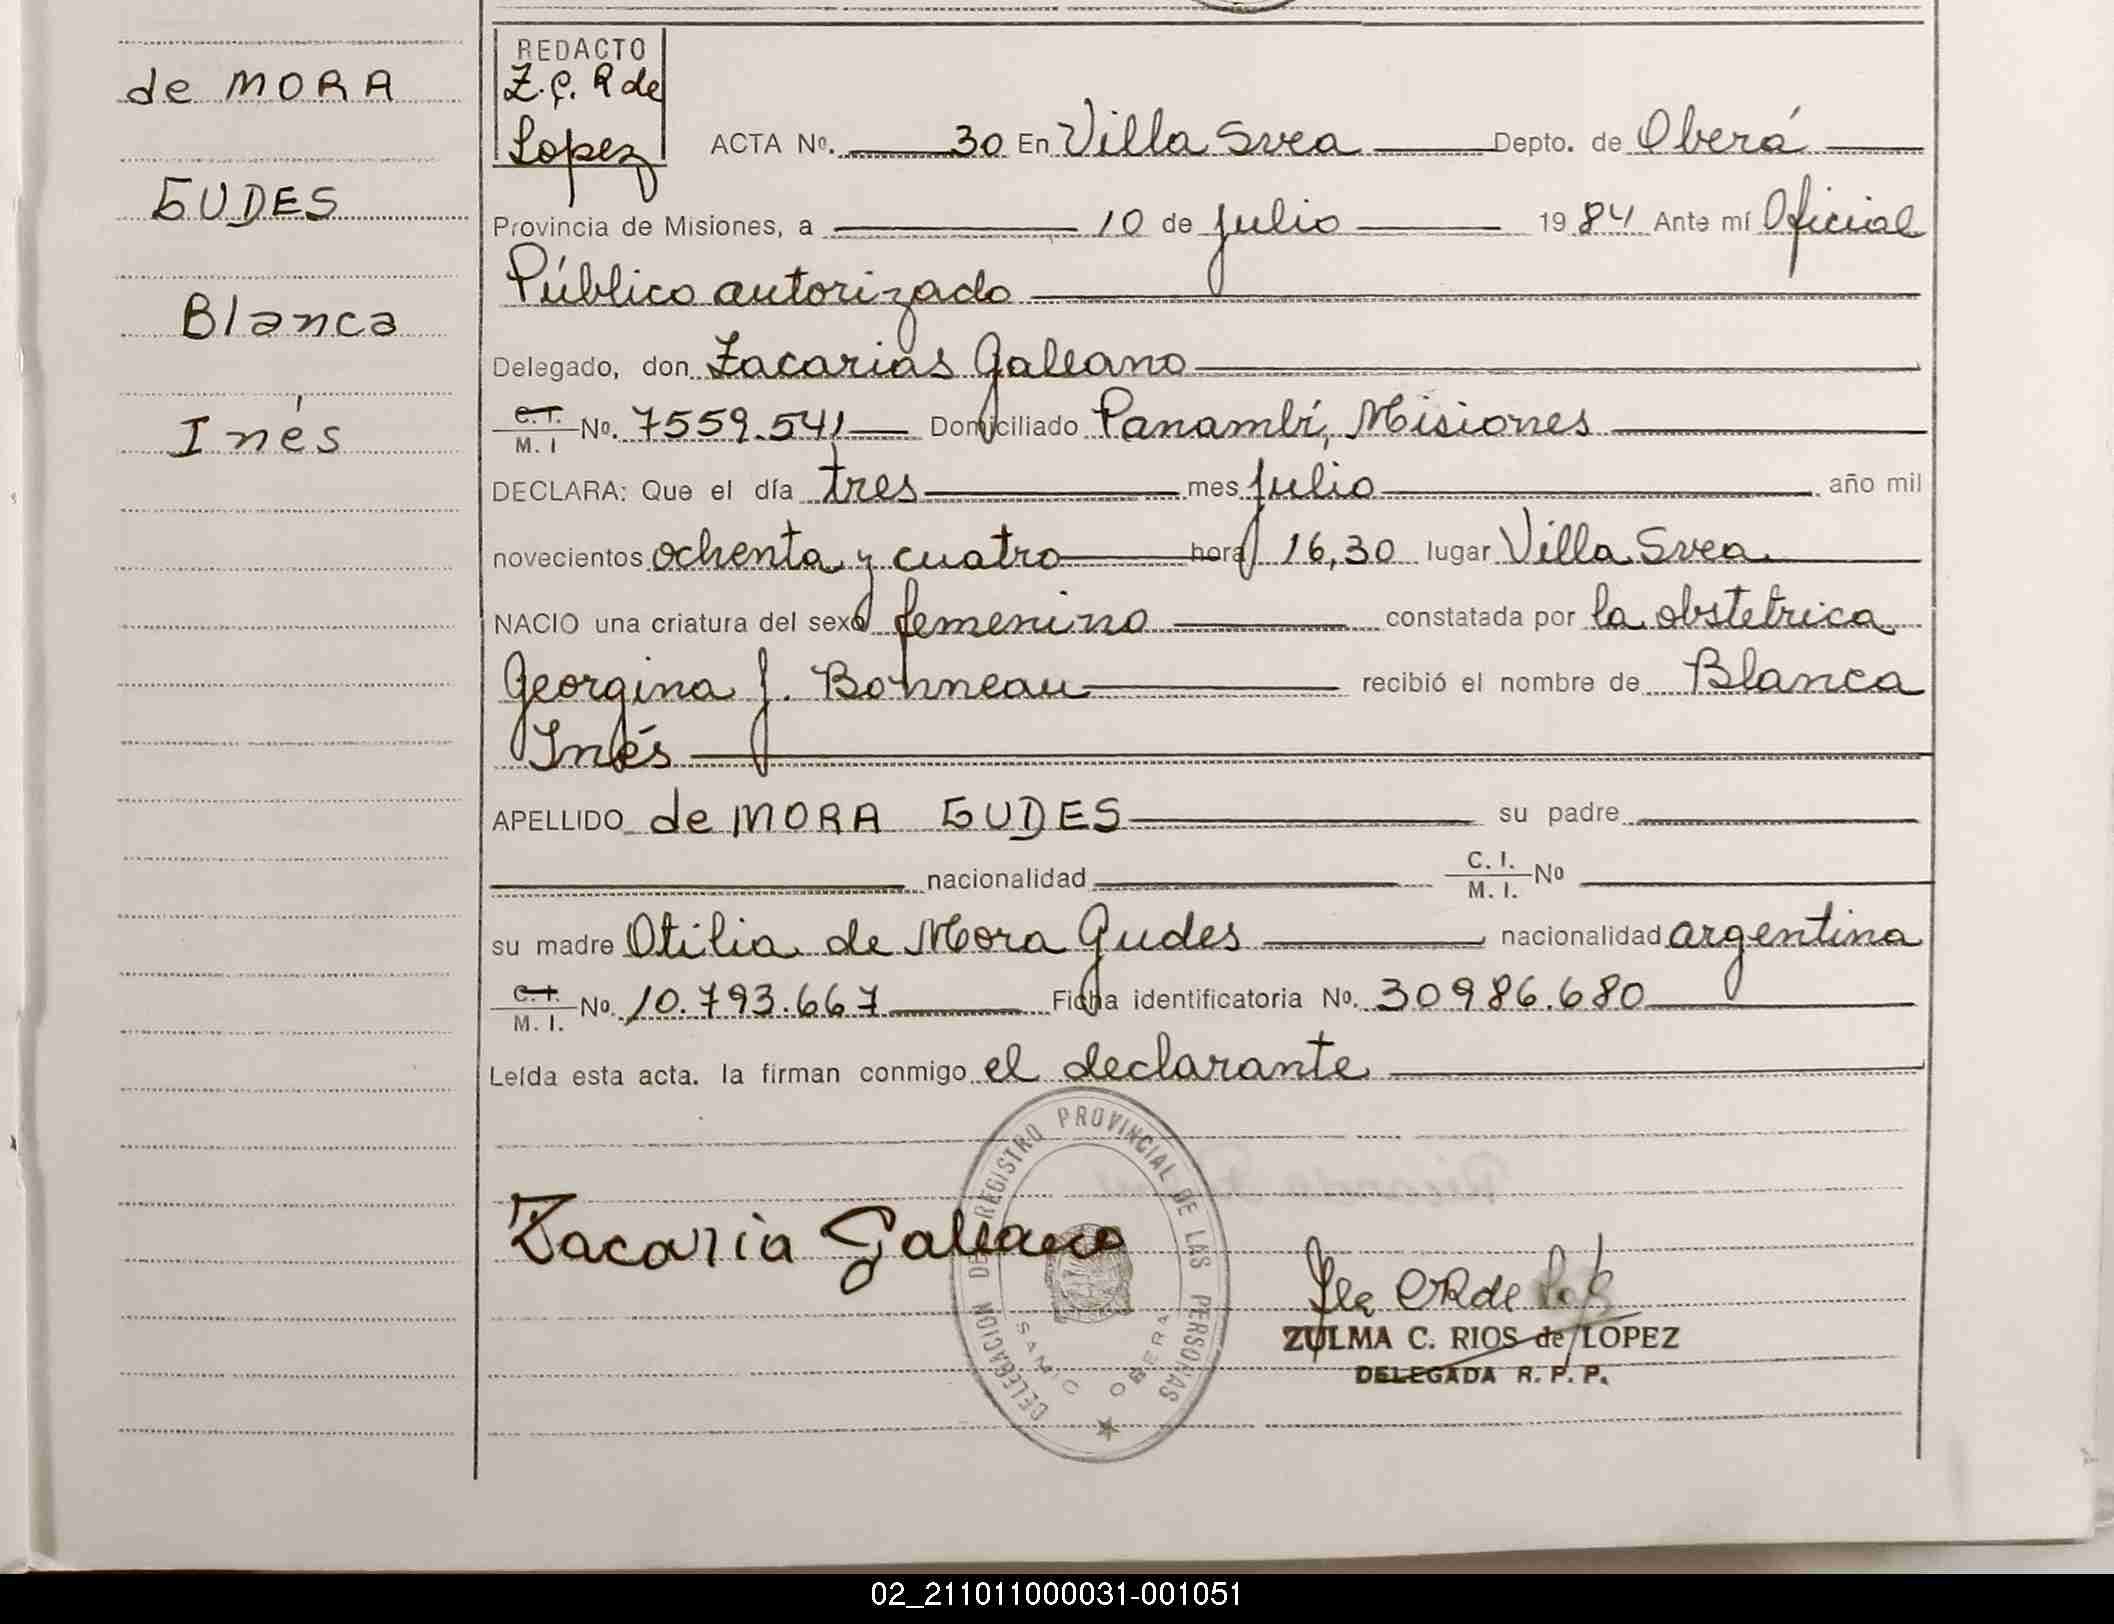 de MORA
GUDES
Blanca
Inés
REDACTO
Z.C. R de
Lopez
ACTA Nº. 30 En Villa Svea Depto. de Oberá
Provincia de Misiones, a 10 de julio 1984 Ante mí Oficial
Público autorizado
Delegado, don Zacarias Galeano
C.I. M.I Nº. 7559.541 Domiciliado Panambí, Misiones
DECLARA: Que el día tres mes julio año mil
novecientos ochenta y cuatro hora 16,30 lugar Villa Svea
NACIO una criatura del sexo femenino constatada por la obstetrica
Georgina J. Bonneau recibió el nombre de Blanca
Inés
APELLIDO de MORA GUDES su padre
nacionalidad C.I. M.I. Nº
su madre Otilia de Mora Gudes nacionalidad argentina
C.I. M.I. Nº. 10.793.667 Ficha identificatoria Nº. 30986.680
Leída esta acta. la firman conmigo el declarante
DELEGACION DE REGISTRO PROVINCIAL DE LAS PERSONAS
SAMIC OBERA
Zacaria Galeano
ZULMA C. RIOS de LOPEZ
DELEGADA R. P. P.
02_211011000031-001051